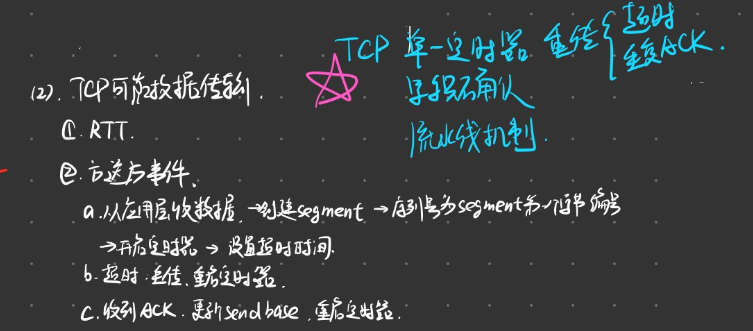 TCP 单一定时器 重传 { 超时
重复ACK.
(2). TCP可靠数据传输.
累积确认
① RTT.
流水线机制.
②. 发送方事件、
a. 从应用层收数据, →创建segment → 序列号为segment第一个字节编号
→开启定时器 → 设置超时时间.
b. 超时. 重传、重启定时器.
c. 收到ACK. 更新sendbase, 重启定时器.